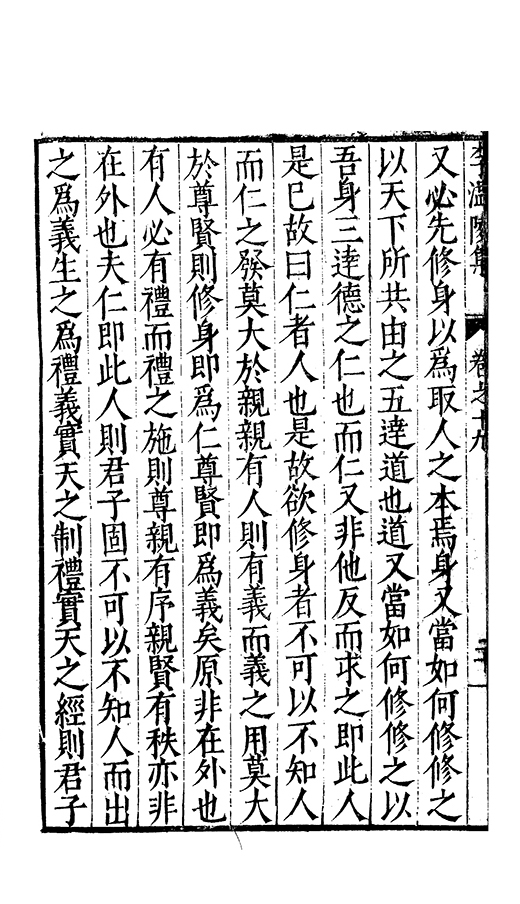 李溫陵集 卷之十九
又必先修身以爲取人之本焉身又當如何修修之
以天下所共由之五達道也道又當如何修修之以
吾身三達德之仁也而仁又非他反而求之即此人
是已故曰仁者人也是故欲修身者不可以不知人
而仁之發莫大於親親有人則有義而義之用莫大
於尊賢則修身即爲仁尊賢即爲義矣原非在外也
有人必有禮而禮之施則尊親有序親賢有秩亦非
在外也夫仁即此人則君子固不可以不知人而出
之爲義生之爲禮義實天之制禮實天之經則君子